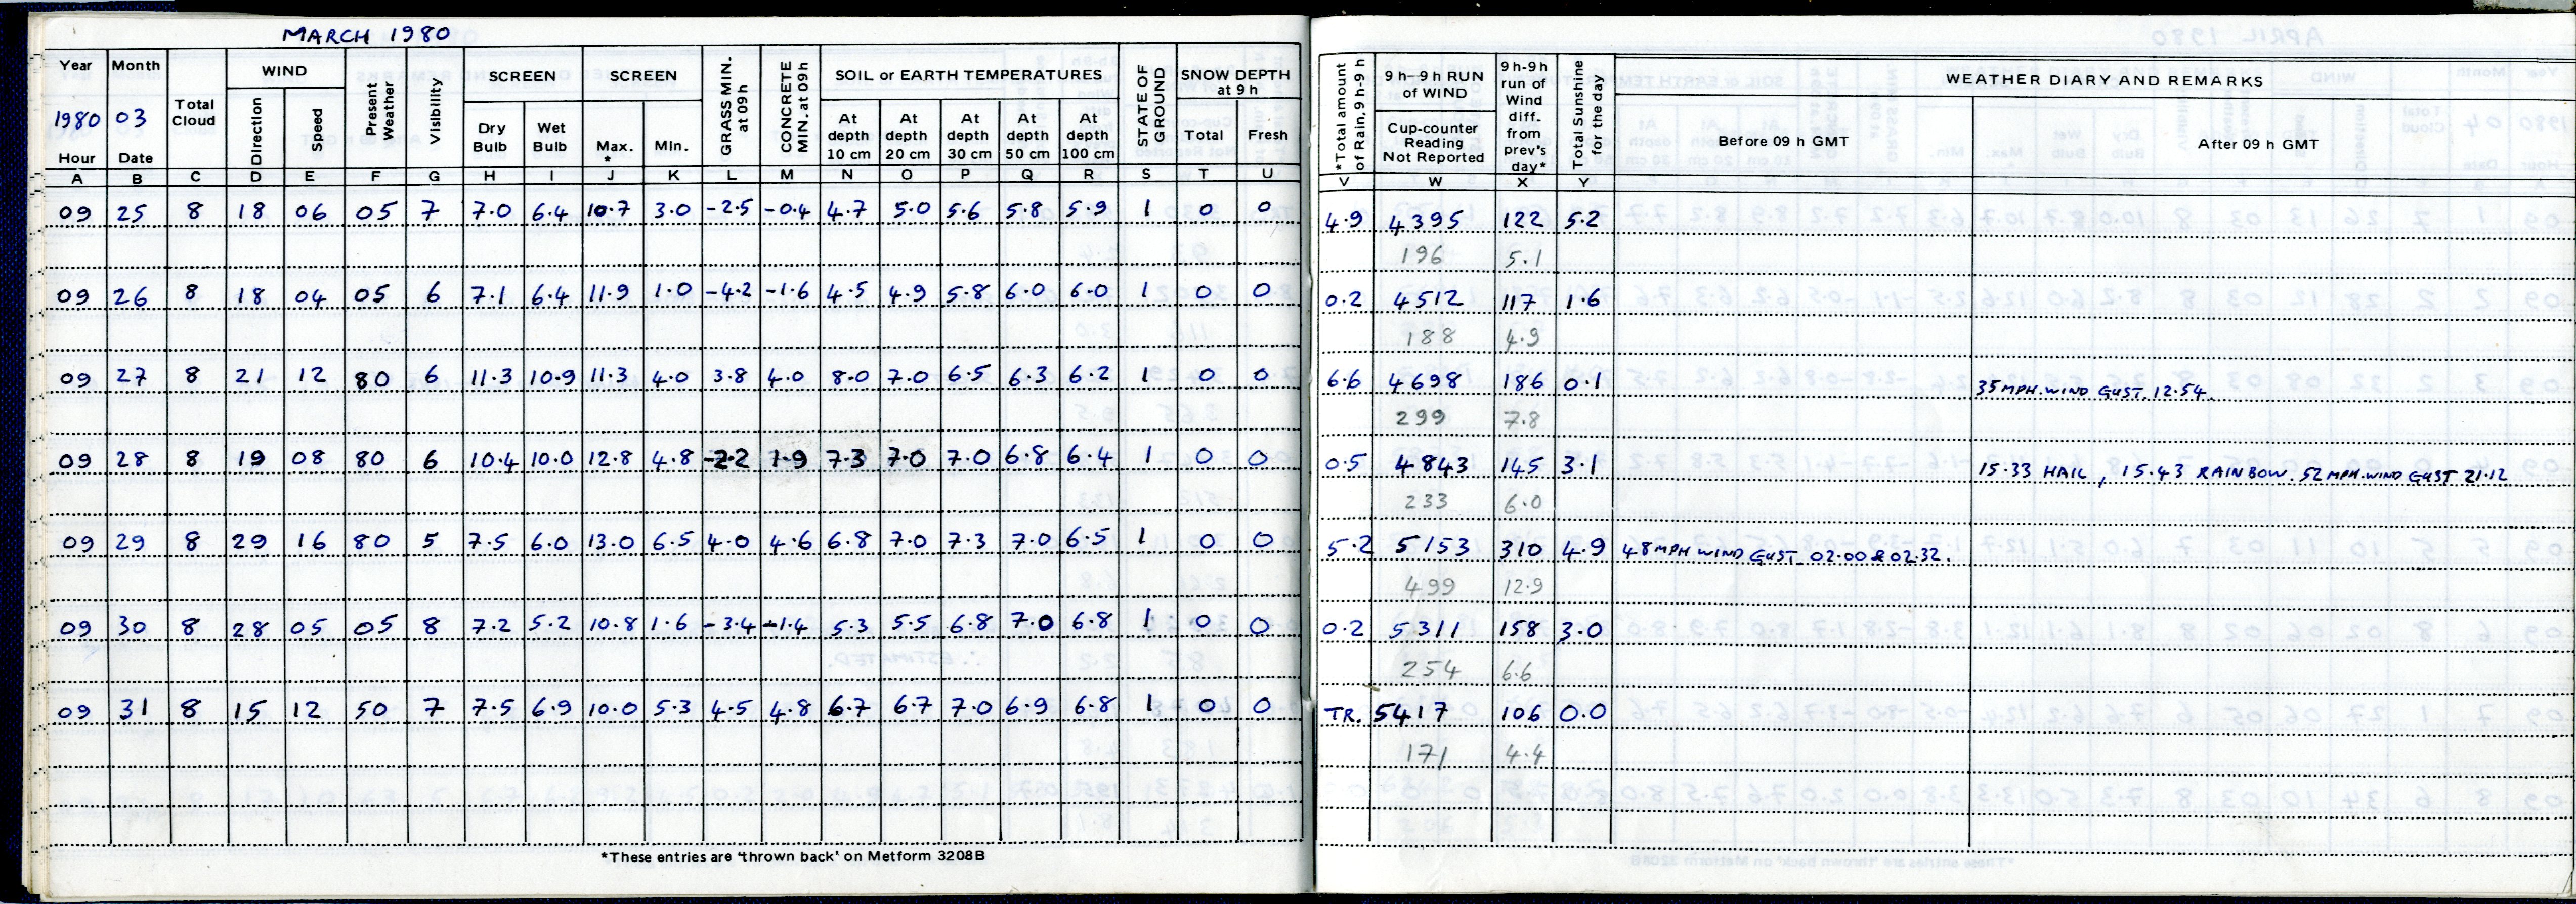 MARCH 1980
Year Month Total Cloud WIND Present Weather Visibility SCREEN SCREEN GRASS MIN. at 09h CONCRETE MIN. at 09h SOIL or EARTH TEMPERATURES STATE OF GROUND SNOW DEPTH at 9 h
1980 03 Direction Speed Dry Bulb Wet Bulb Max. * Min. At depth 10 cm At depth 20 cm At depth 30 cm At depth 50 cm At depth 100 cm Total Fresh
Hour Date
A B C D E F G H I J K L M N O P Q R S T U
09 25 8 18 06 05 7 7.0 6.4 10.7 3.0 -2.5 -0.4 4.7 5.0 5.6 5.8 5.9 1 0 0
09 26 8 18 04 05 6 7.1 6.4 11.9 1.0 -4.2 -1.6 4.5 4.9 5.8 6.0 6.0 1 0 0
09 27 8 21 12 80 6 11.3 10.9 11.3 4.0 3.8 4.0 8.0 7.0 6.5 6.3 6.2 1 0 0
09 28 8 19 08 80 6 10.4 10.0 12.8 4.8 -2.2 1.9 7.3 7.0 7.0 6.8 6.4 1 0 0
09 29 8 29 16 80 5 7.5 6.0 13.0 6.5 4.0 4.6 6.8 7.0 7.3 7.0 6.5 1 0 0
09 30 8 28 05 05 8 7.2 5.2 10.8 1.6 -3.4 -1.4 5.3 5.5 6.8 7.0 6.8 1 0 0
09 31 8 15 12 50 7 7.5 6.9 10.0 5.3 4.5 4.8 6.7 6.7 7.0 6.9 6.8 1 0 0
*These entries are 'thrown back' on Metform 3208B
*Total amount of Rain, 9 h-9 h 9 h—9 h RUN of WIND 9 h-9h run of Wind diff. from prev's day* Total Sunshine for the day WEATHER DIARY AND REMARKS
Cup-counter Reading Not Reported Before 09 h GMT After 09 h GMT
V W X Y
4.9 4395 122 5.2
196 5.1
0.2 4512 117 1.6
188 4.9
6.6 4698 186 0.1 35 MPH. WIND GUST. 12.54.
299 7.8
0.5 4843 145 3.1 15.33 HAIL, 15.43 RAINBOW. 52 MPH. WIND GUST 21.12
233 6.0
5.2 5153 310 4.9 48 MPH WIND GUST 02.00 & 02.32.
499 12.9
0.2 5311 158 3.0
254 6.6
TR. 5417 106 0.0
171 4.4